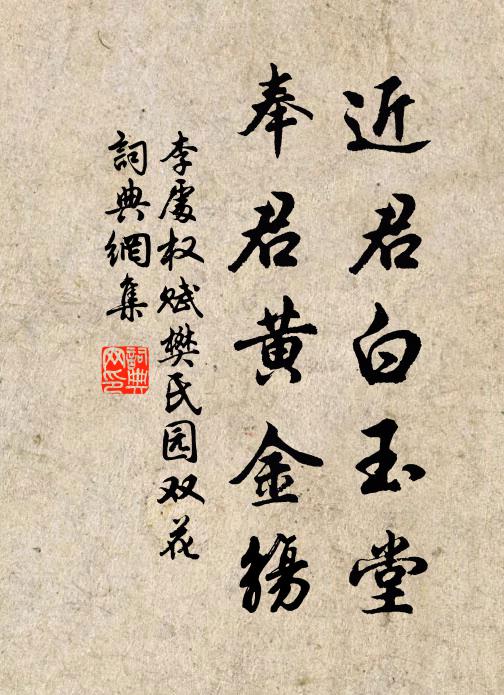 近君白玉堂
奉君黄金觴
李處权赋樊氏园双花
詞典網集
詞典网印